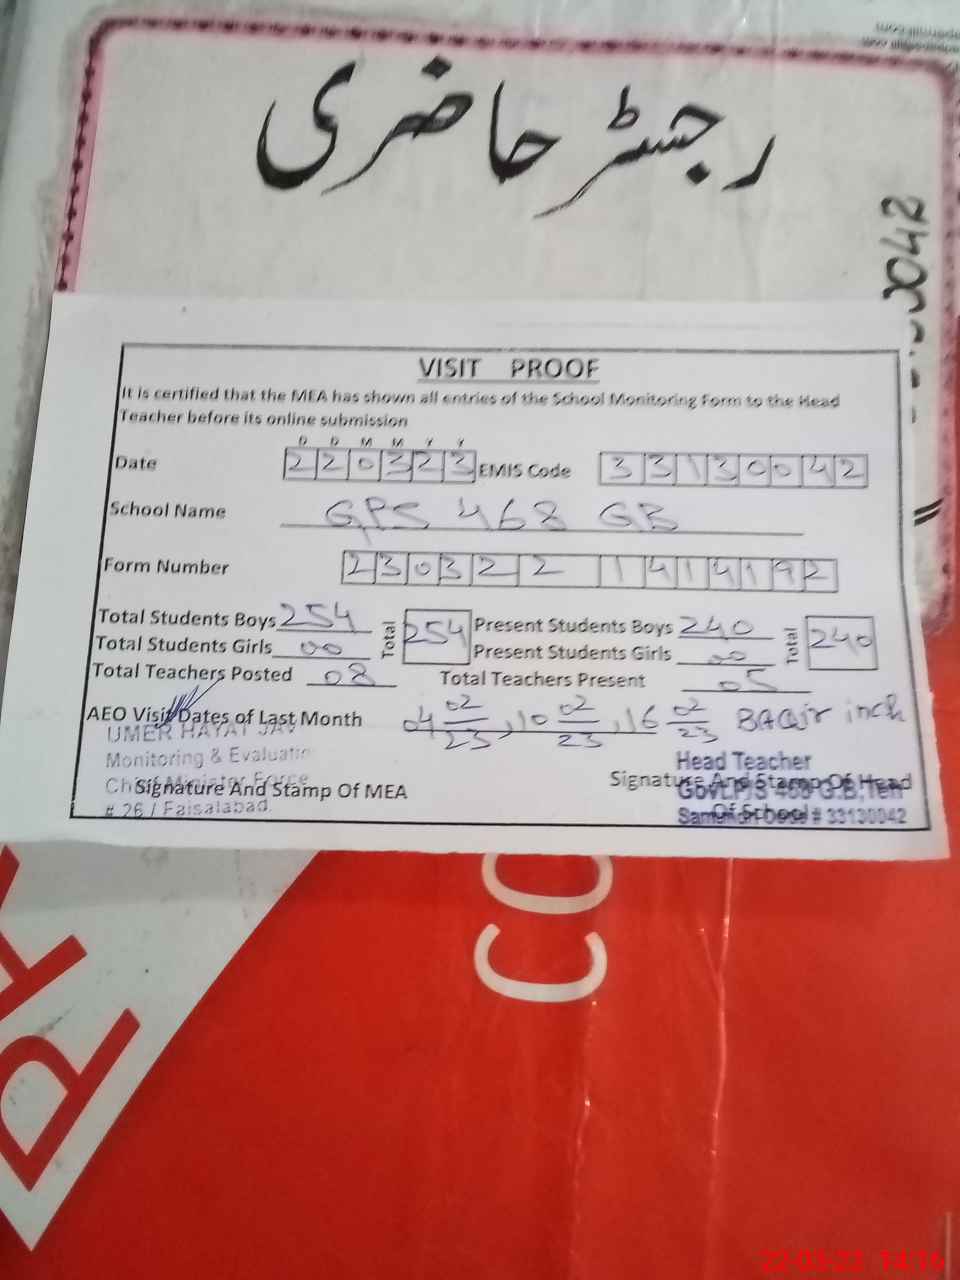 رجسٹر حاضری
VISIT PROOF
It is certified that the MEA has shown all entries of the School Monitoring Form to the Head
Teacher before its online submission
D D M M Y Y
Date 220323 EMIS Code 33130042
School Name GPS 468 GB
Form Number 230322 1414192
Total Students Boys 254 Total 254 Present Students Boys 240 Total 240
Total Students Girls 00 Present Students Girls 00
Total Teachers Posted 08 Total Teachers Present 05
AEO Visit Dates of Last Month 04 02/23, 10 02/23, 16 02/23 BAQir inch
UMER HAYAT
Monitoring & Evaluation
Chief Minister Force
# 26 / Faisalabad.
Signature And Stamp Of MEA
Head Teacher
Govt.P/S 468 G.B,Teh
# 33130042
Signature And Stamp Of Head
Of School
CO